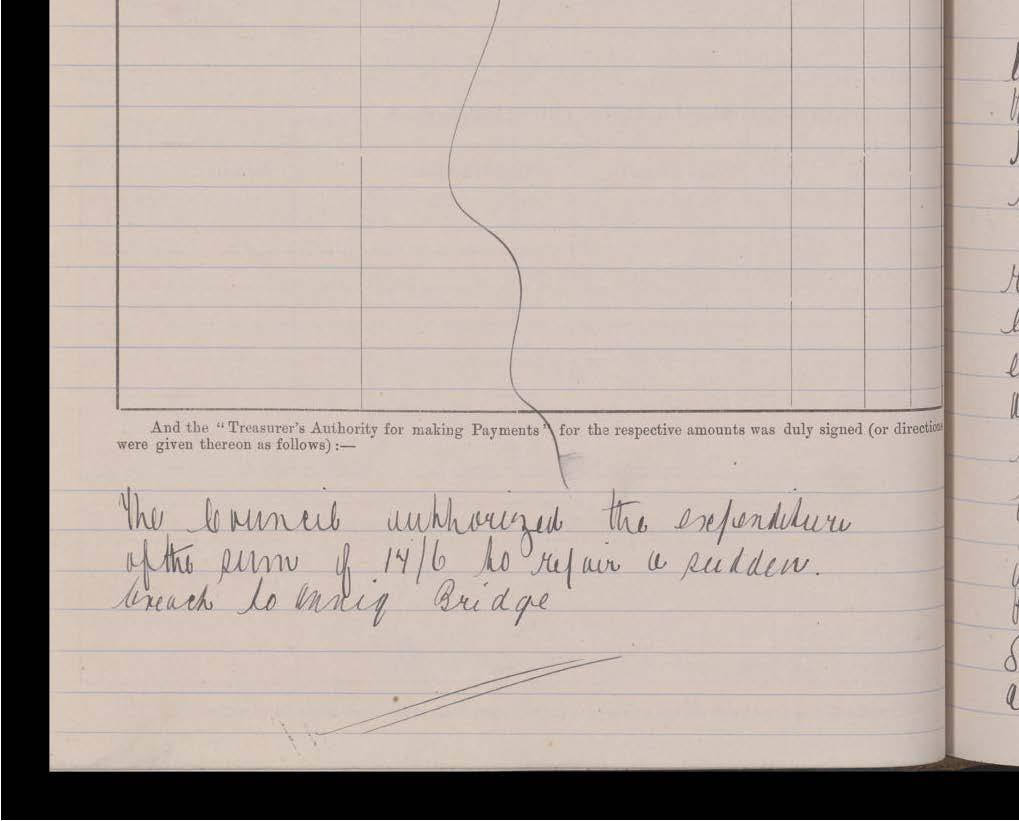 And the "Treasurer's Authority for making Payments" for the respective amounts was duly signed (or directions
were given thereon as follows) :—
The Council authorized the expenditure
of the sum of 14/6 to repair a sudden.
breach to Bridge